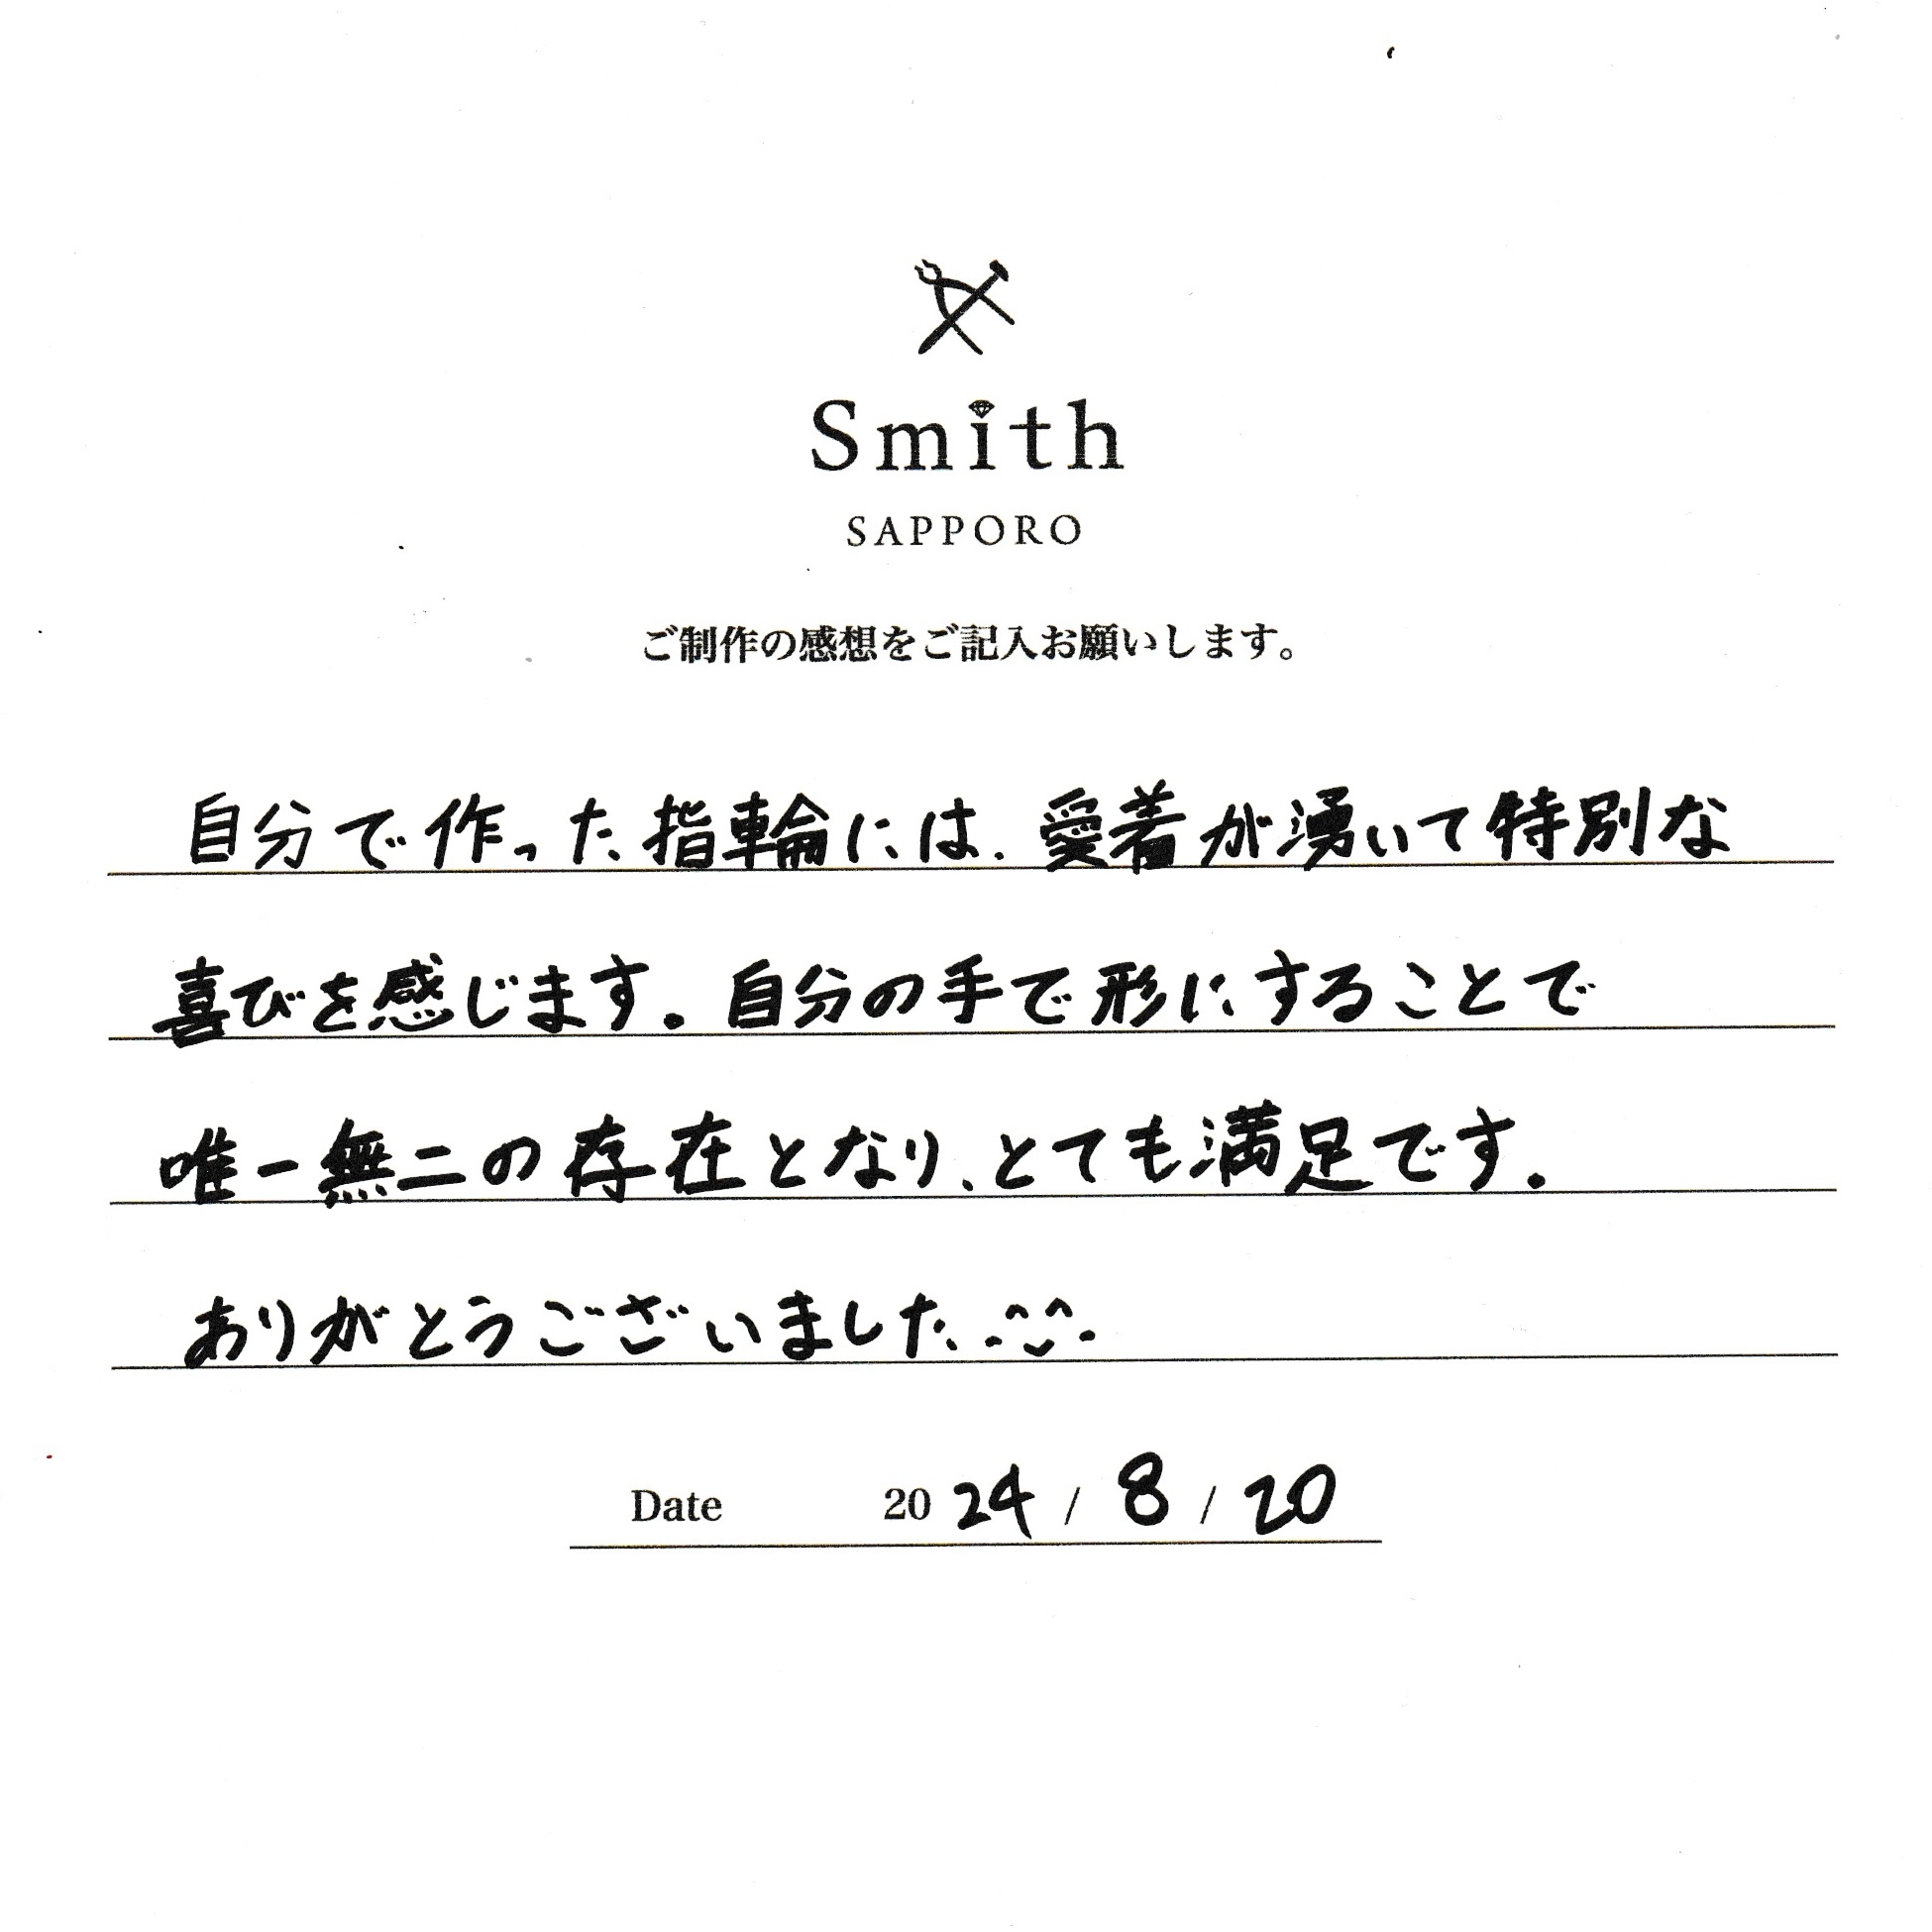 Smith
SAPPORO
ご制作の感想をご記入お願いします。
自分で作った指輪には、愛着が湧いて特別な
喜びを感じます。自分の手で形にすることで
唯一無二の存在となり、とても満足です。
ありがとうございました
Date 2024 / 8 / 20